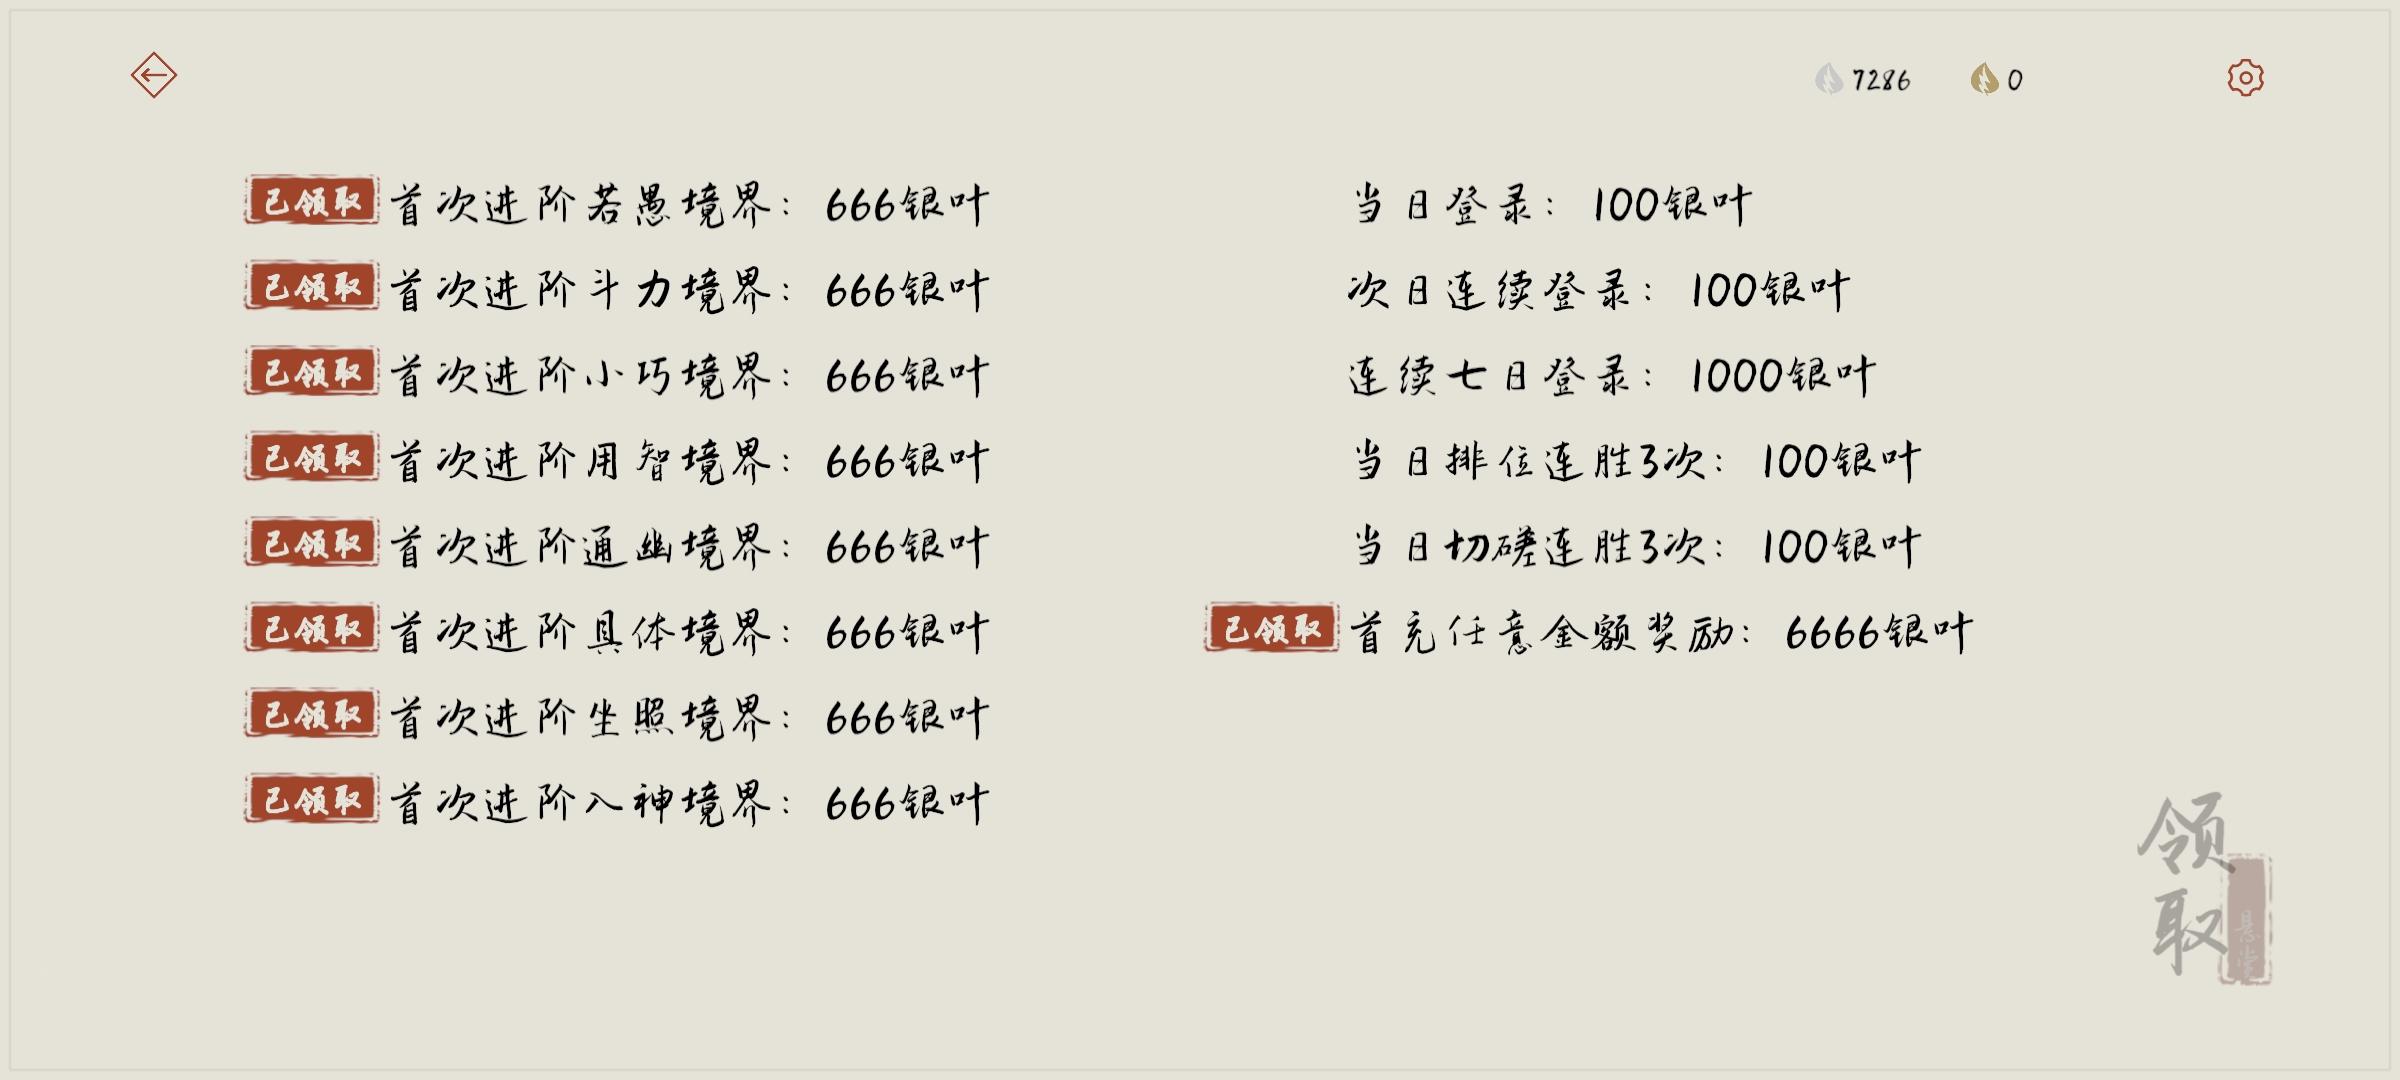 7286 0
已领取 首次进阶若愚境界：666银叶
已领取 首次进阶斗力境界：666银叶
已领取 首次进阶小巧境界：666银叶
已领取 首次进阶用智境界：666银叶
已领取 首次进阶通幽境界：666银叶
已领取 首次进阶具体境界：666银叶
已领取 首次进阶坐照境界：666银叶
已领取 首次进阶入神境界：666银叶
当日登录：100银叶
次日连续登录：100银叶
连续七日登录：1000银叶
当日排位连胜3次：100银叶
当日切磋连胜3次：100银叶
已领取 首充任意金额奖励：6666银叶
领取
悬赏